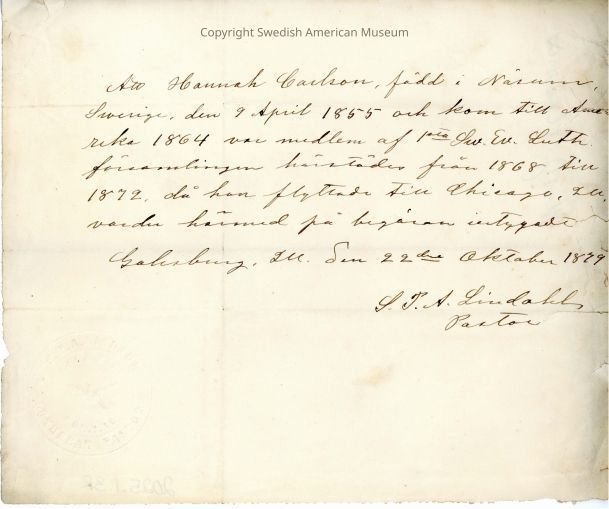 Copyright Swedish American Museum
Att Hannah Carlson, född i Näsum,
Sverige, den 9 April 1855 och kom till Ame-
rika 1864 var medlem af 1sta Sw. Ev. Luth.
församlingen härstädes från 1868 till
1872, då hon flyttade till Chicago, Ill.
varder härmed på begäran intygadt
Galesburg, Ill. den 22dre Oktober 1879
S. P. A. Lindahl
Pastor